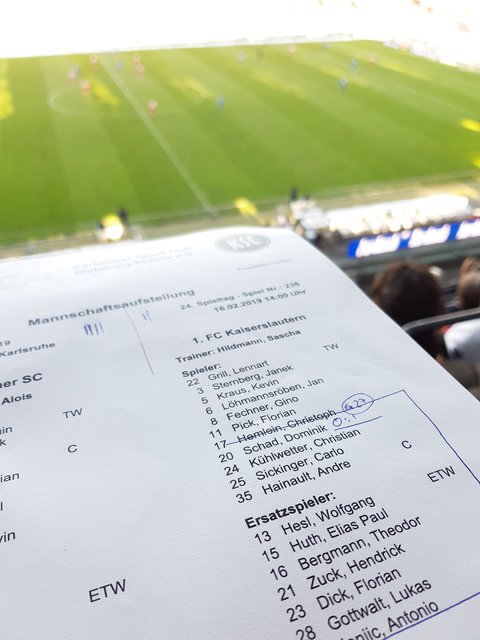 KSC
Karlsruher Sport-Club
Mühlburg-Phönix e.V.
Mannschaftsaufstellung
24. Spieltag - Spiel Nr.: 238
16.02.2019 14:00 Uhr
19
Karlsruhe
ner SC
Alois
TW
C
ETW
1. FC Kaiserslautern
Trainer: Hildmann, Sascha
Spieler:
22 Grill, Lennart TW
3 Sternberg, Janek
5 Kraus, Kevin
6 Löhmannsröben, Jan
8 Fechner, Gino
11 Pick, Florian
17 Hemlein, Christoph
20 Schad, Dominik
24 Kühlwetter, Christian
25 Sickinger, Carlo C
35 Hainault, Andre
Ersatzspieler:
13 Hesl, Wolfgang ETW
15 Huth, Elias Paul
16 Bergmann, Theodor
21 Zuck, Hendrick
23 Dick, Florian
28 Gottwalt, Lukas
Antonio